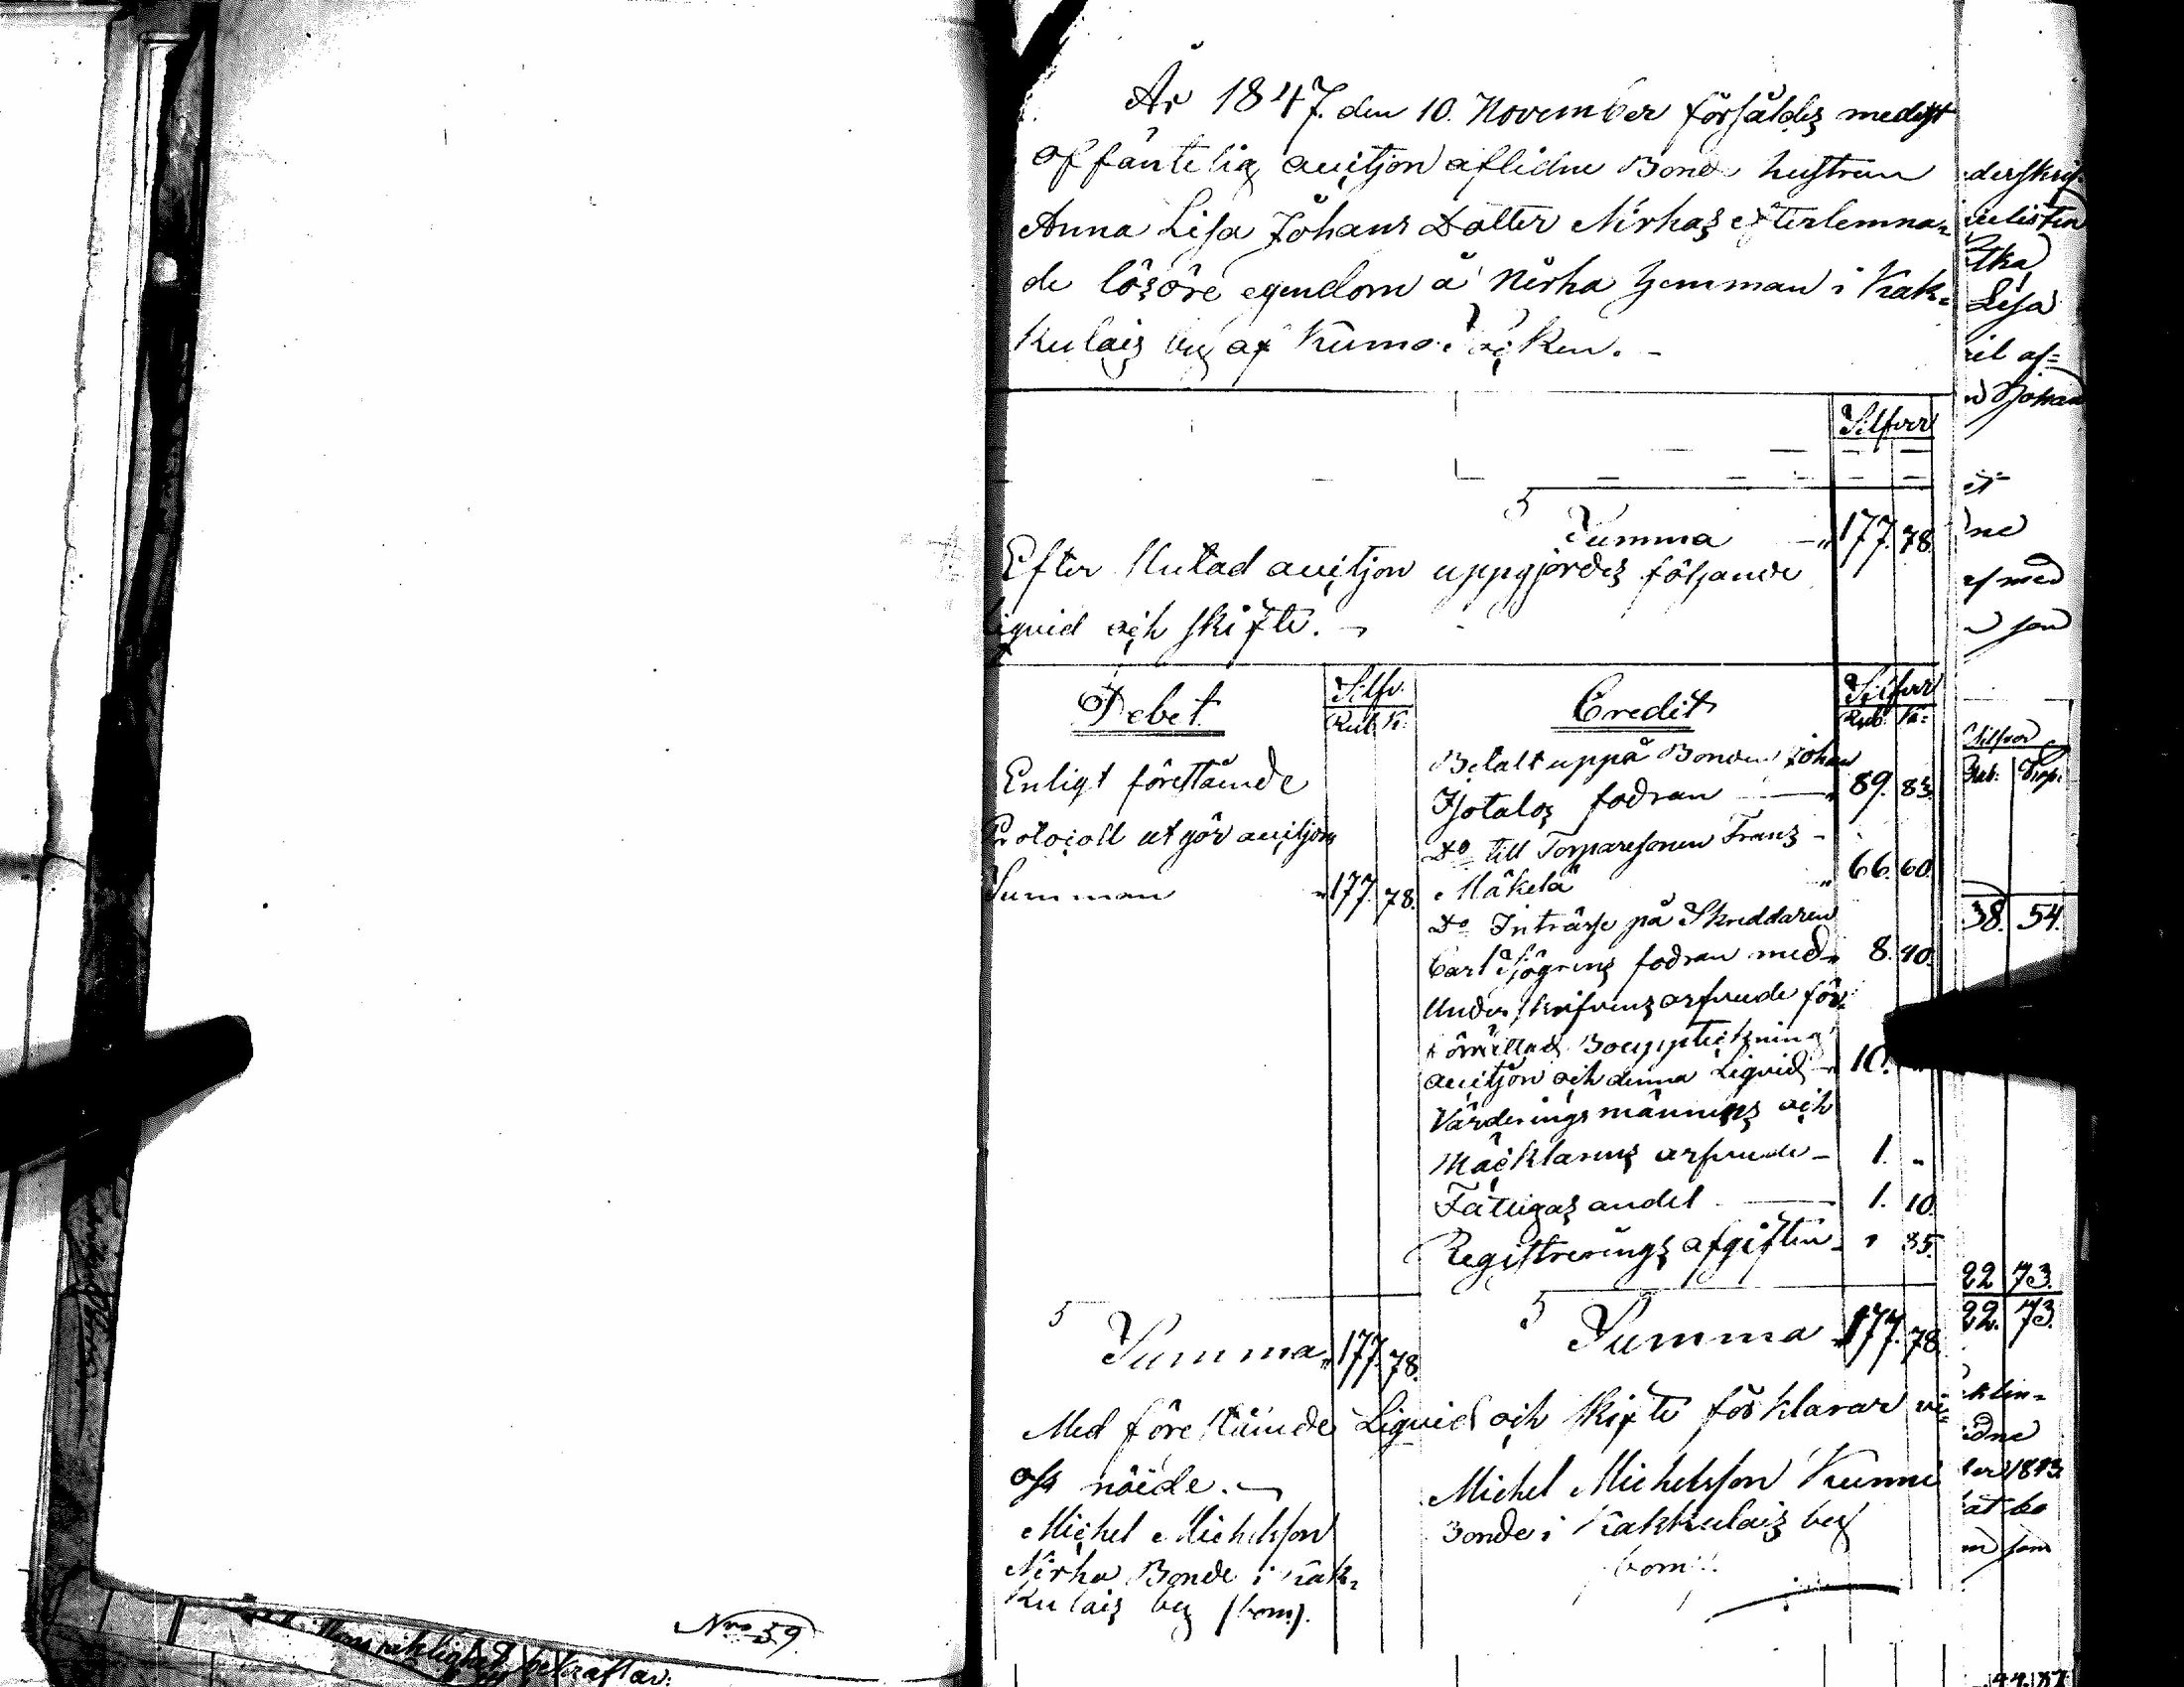 År 1847. den 10. November försåldes medelst
offäntelig auctjon aflidne Bonde hustrun
Anna Lisa Johans Dotter Nirhas efterlemna=
de lösöre egendom å Nirha hemman i Kak=
kulais by af Kumo Socken. -
Silfver
Summa " 177. 78.
Efter slutad auctjon uppgjordes följande
liqvid och skifte. -
Debet
Silfv.
Rub. K.
Enligt föreståinde
Protocoll utgör auctjons
Summan " 177. 78.
Summa " 177. 78.
Credit
Silfver
Rub. K.
Betalt uppå Bonden Johan
Isotalos fodran " 89. 83.
Do till Torparesonen Frans
Mäkelä " 66. 60.
Do Inträsse på Skreddaren
Carl Sjögrens fodran med " 8. 90.
Underskrifvens arfvude för
förrättad Bouppteckning
auctjon och denna Liqvid " 10.
Värderingsmännens och
Mäcklarens arfvude - 1. "
Fattigas andel 1. 10.
Registrerings afgiften " 35.
Summa " 177. 78.
Med föreståinde Liqvid och skifte förklarar vi
oss nöide. -
Michel Michelsson
Nirha Bonde i Kak=
kulais by (bom.).
Michel Michelsson Kunni
Bonde i Kakkulais by
bom.
Nro 59
riktighet bekräftar:
Lisa
af=
med
son
Silfver
Rub. Kop.
38. 54.
22 73.
22. 73.